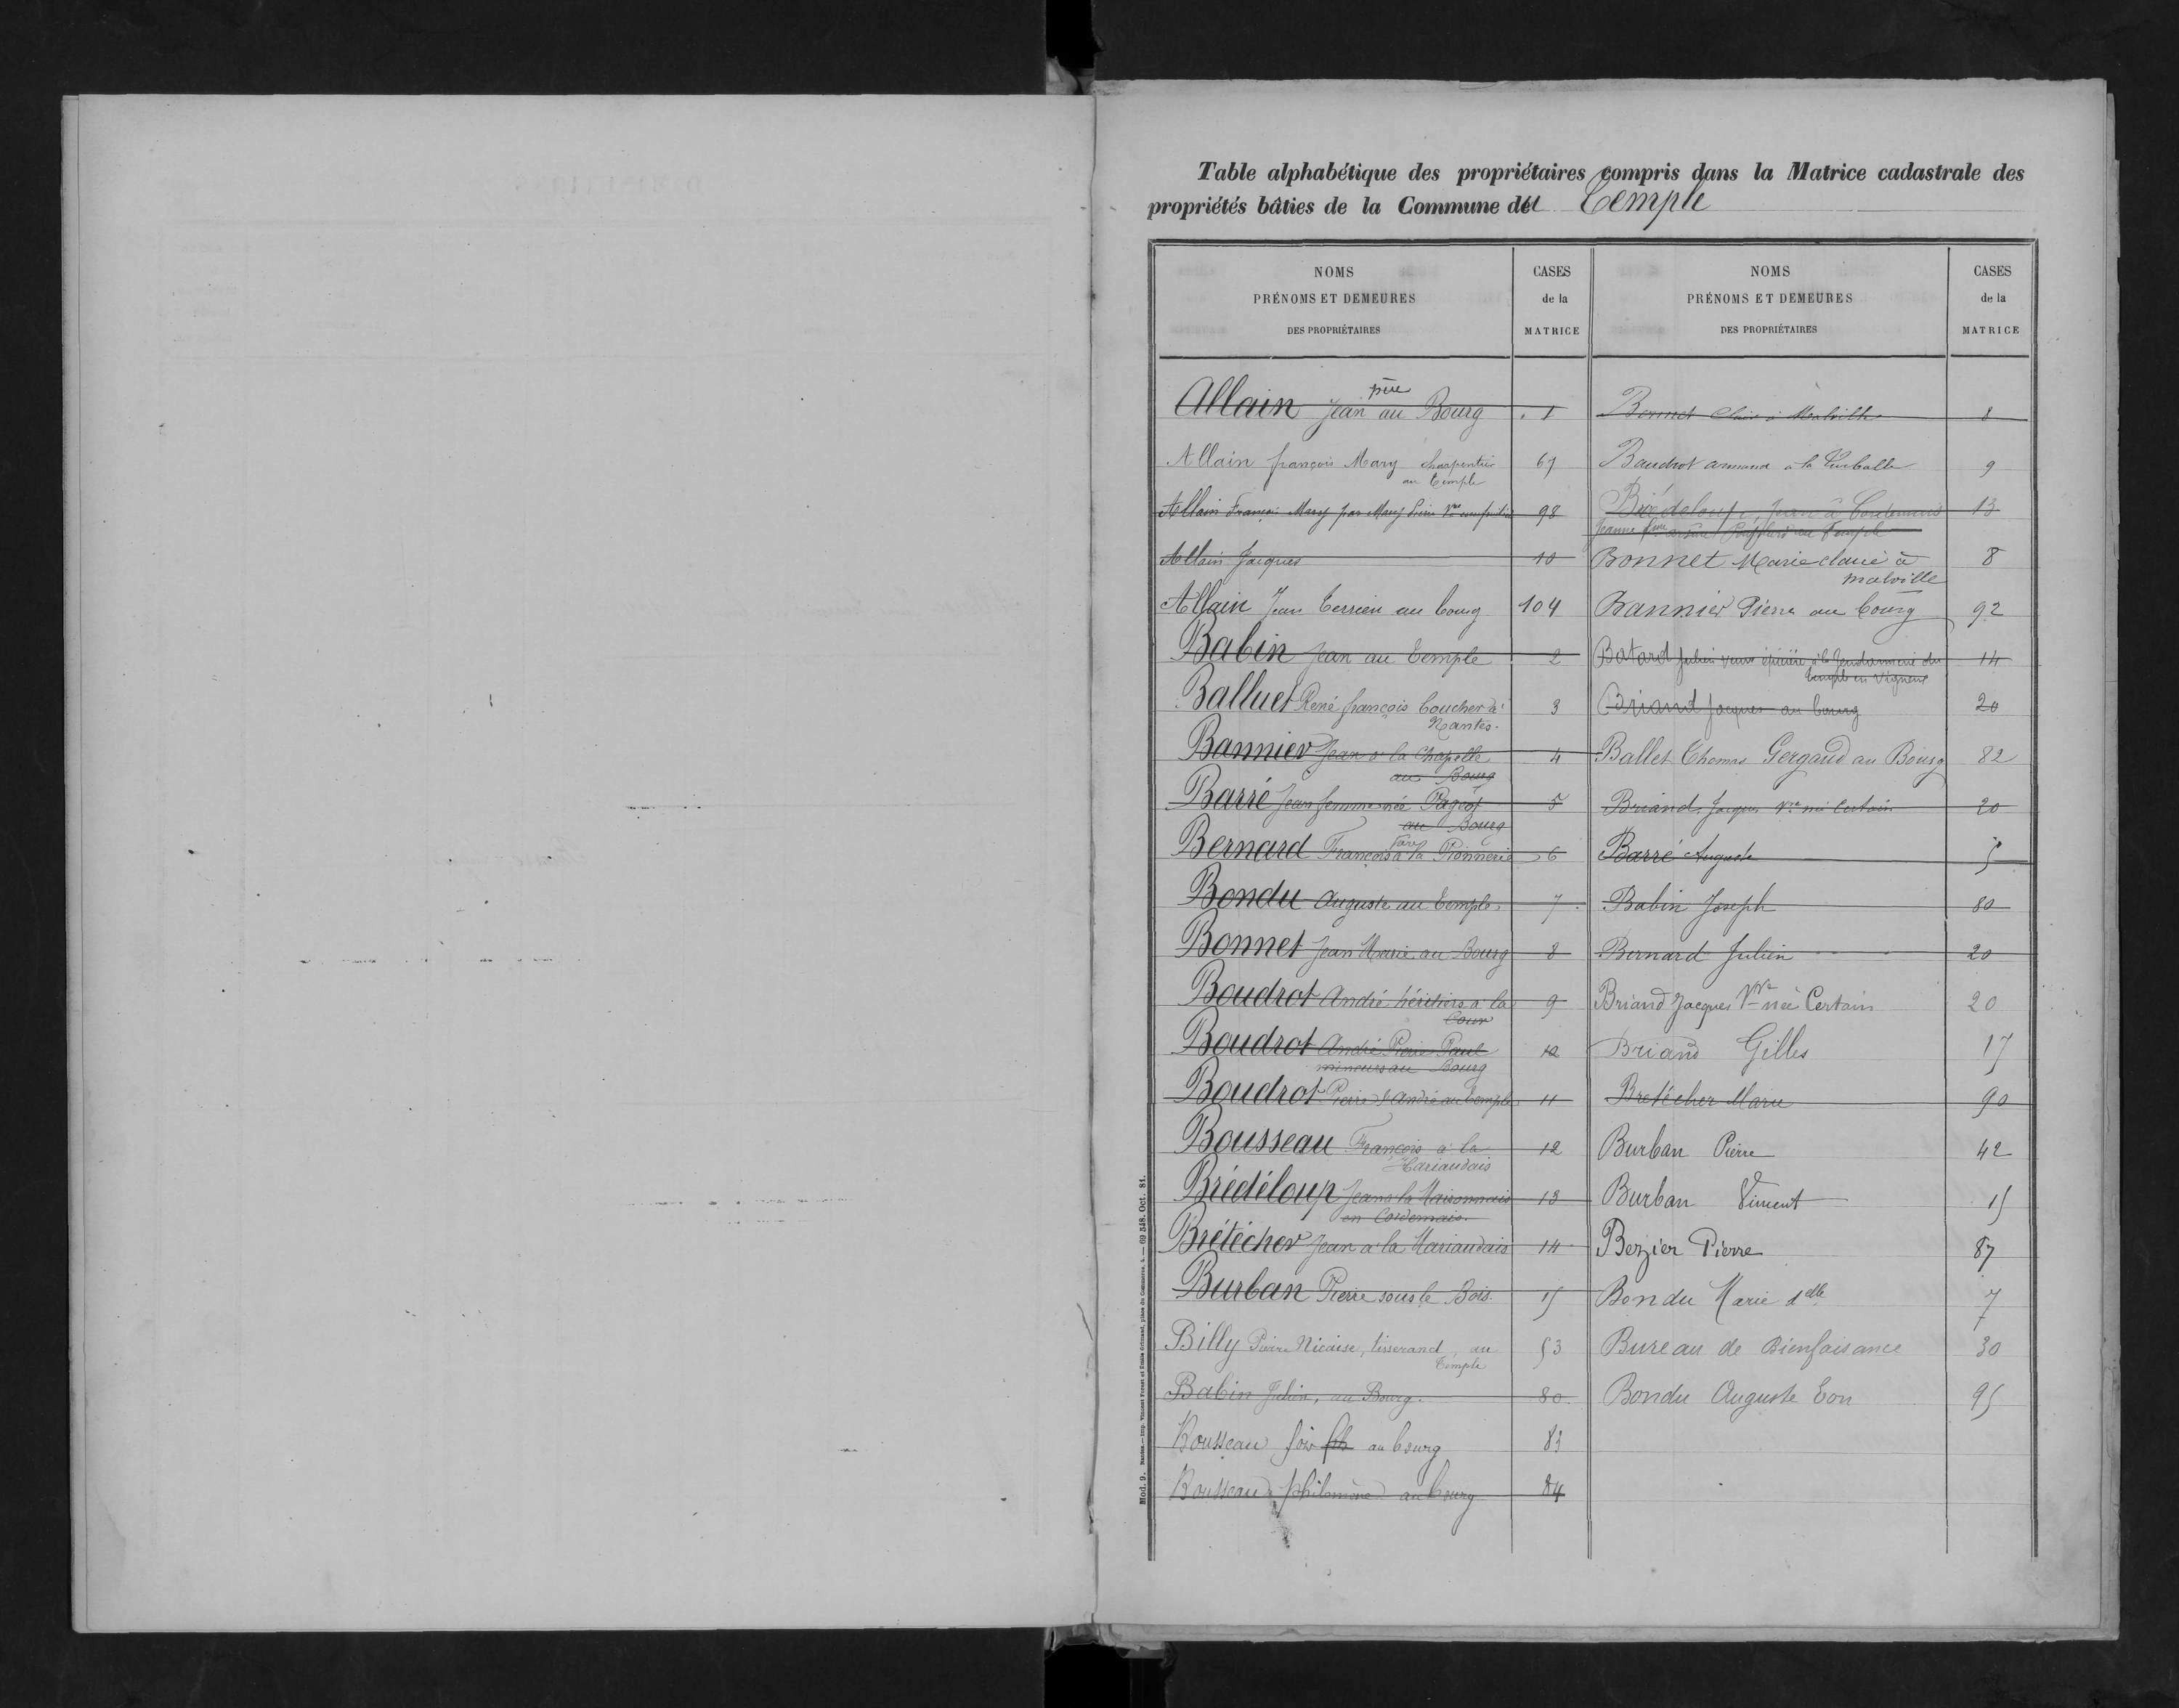 Table alphabétique des propriétaires compris dans la Matrice cadastrale des
propriétés bâties de la Commune du Temple
NOMS
PRÉNOMS ET DEMEURES
DES PROPRIÉTAIRES
CASES
de la
MATRICE
NOMS
PRÉNOMS ET DEMEURES
DES PROPRIÉTAIRES
CASES
de la
MATRICE
père
Allain Jean au Bourg 1
Allain françois Mary charpentier 67
au Temple
Allain François Mary par Mary Pierre Vve 98
Allain Jacques 10
Allain Jean Terrien au bourg 104
Babin Jean au Temple 2
Balluet René françois boucher à 3
Nantes.
Bannier Jean à la Chapelle 4
au Bourg
Barré Jean femme née Pageot 5
au Bourg
Bernard François à la Pionnerie 6
Bondu Auguste au Temple 7
Bonnet Jean Marie au Bourg 8
Boudrot André héritiers à la 9
Cour
Boudrot André Pierre Paul 12
mineurs au Bourg
Boudrot Pierre & André au Temple 11
Bousseau François à la 12
Hariaudais
Brédéloup Jean à la Maisonnais 13
en Cordemais.
Brétécher Jean à la Hariaudais 14
Burban Pierre sous le Bois 15
Billy Pierre Nicaise, tisserand, au 53
Temple
Babin Julien, au Bourg. 80
Bousseau fois fils au bourg 83
Bousseau philomène au bourg 84
Bonnet Claire à Malville 8
Baudrot armand à la Turballe 9
Brédeloup, Jean à Cordemais 13
Jeanne fme au Temple
Bonnet Marie claire à 8
malville
Bannier Pierre au bourg 92
Batard Julien veuve épicière à la Gendarmerie du 14
Temple en Vigneux
Briand Jacques au bourg 20
Ballet Thomas Gergaud au Bourg 82
Briand Jacques Vve née Certain 20
Barré Auguste 5
Babin Joseph 80
Bernard Julien 20
Briand Jacques Vve née Certain 20
Briand Gilles 17
Bretécher Marie 90
Burban Pierre 42
Burban Vincent 15
Bezier Pierre 87
Bondu Marie delle 7
Bureau de Bienfaisance 30
Bondu Auguste Eon 95
Mod. 9. Nantes.—Imp. Vincent Forest et Emile Grimaud, place du Commerce, 4.— 69 548. Oct. 81.